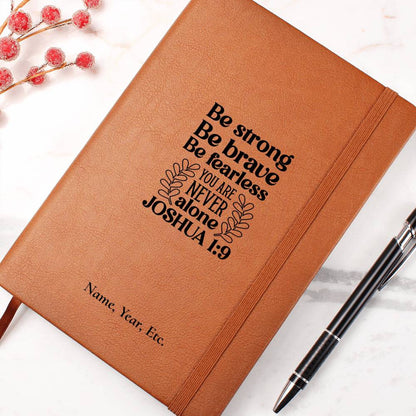 Be strong
Be brave
Be fearless
YOU ARE
NEVER
alone
JOSHUA 1:9
Name, Year, Etc.